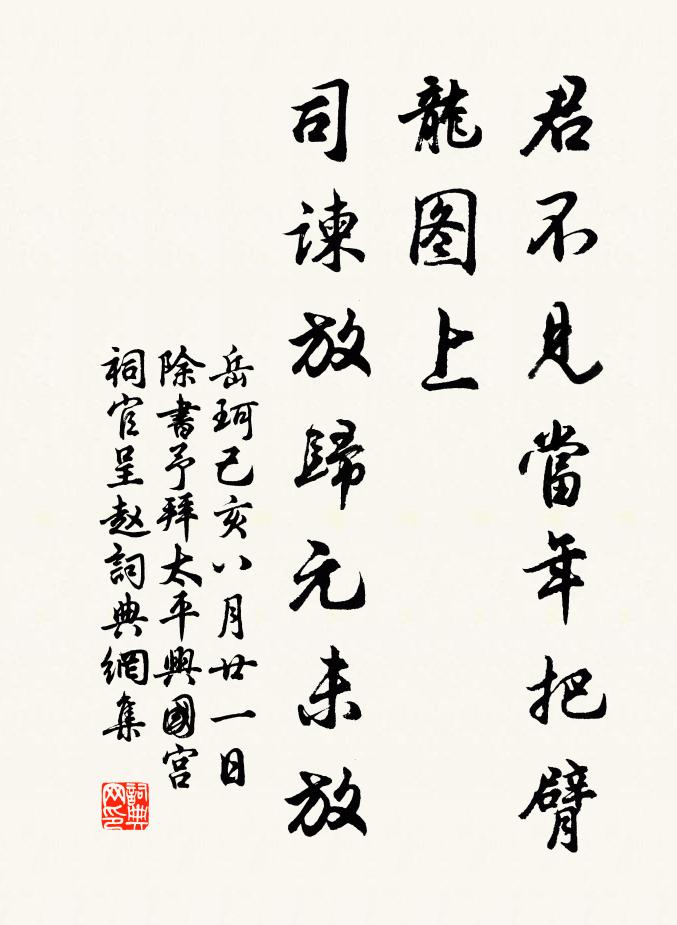 君不見當年把臂
龍图上
司諫放歸元未放
岳珂己亥八月廿一日
除書予拜太平興國宮
祠官呈赵詞典網集
詞典网印